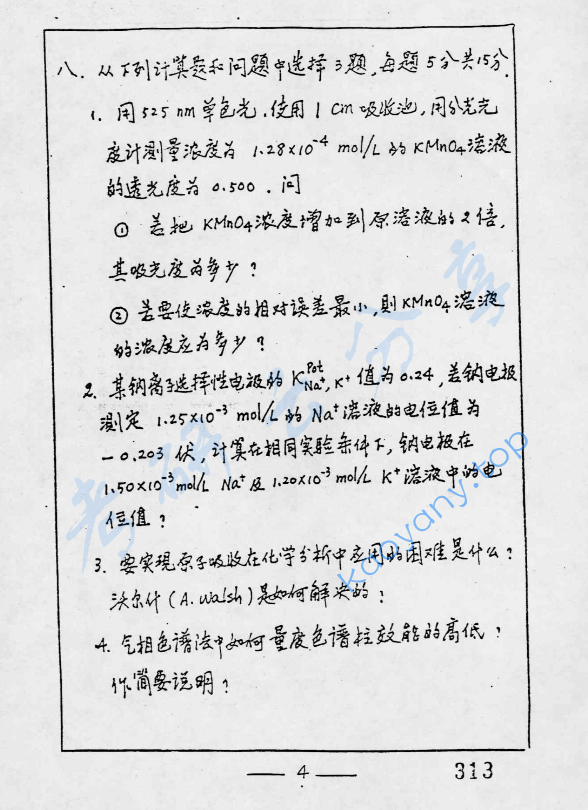 八. 从下列计算题和问题中选择3题,每题5分共15分.
1. 用525nm单色光.使用1cm吸收池,用分光光
度计测量浓度为 1.28×10⁻⁴ mol/L的KMnO4溶液
的透光度为0.500. 问
① 若把KMnO4浓度增加到原溶液的2倍,
其吸光度为多少?
② 若要使浓度的相对误差最小,则KMnO4溶液
的浓度应为多少?
2. 某钠离子选择性电极的K^Pot_Na⁺,K⁺值为0.24,若钠电极
测定 1.25×10⁻³ mol/L的Na⁺溶液的电位值为
-0.203伏,计算在相同实验条件下,钠电极在
1.50×10⁻³mol/L Na⁺及1.20×10⁻³mol/L K⁺溶液中的电
位值?
3. 要实现原子吸收在化学分析中应用的困难是什么?
沃尔什(A.Walsh)是如何解决的?
4. 气相色谱法中如何量度色谱柱效能的高低?
作简要说明?
— 4 —
313
考研者分享
kaoyany.top